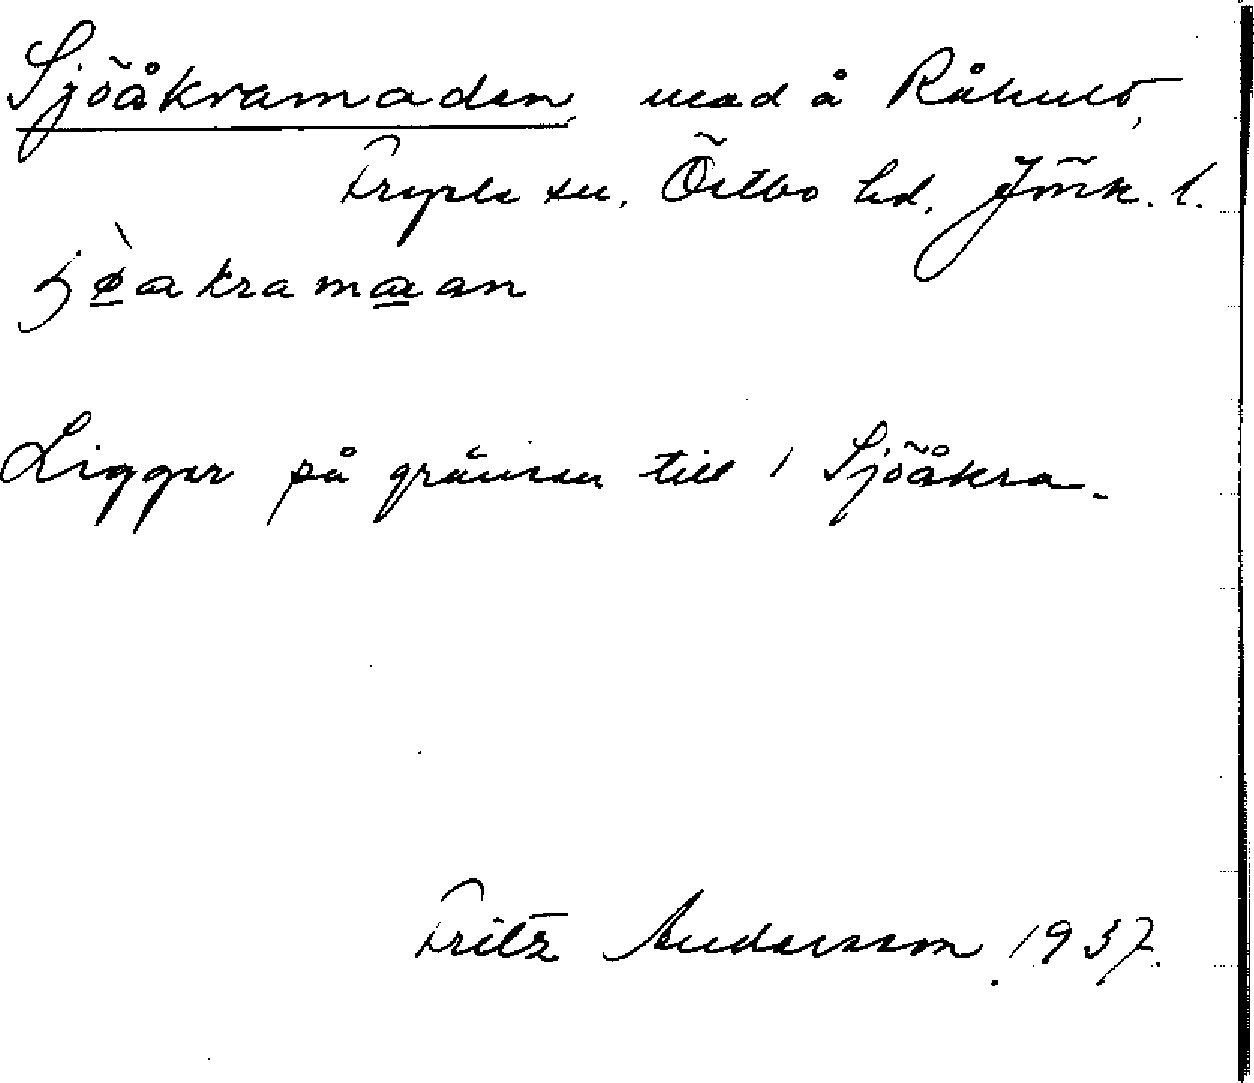 Sjöåkramaden, mad å Råhult,
Fryele sn, Östbo hd, Jönk. l.
Ligger på gränsen till 1 Sjöåkra.
Fritz Andersson 1937.